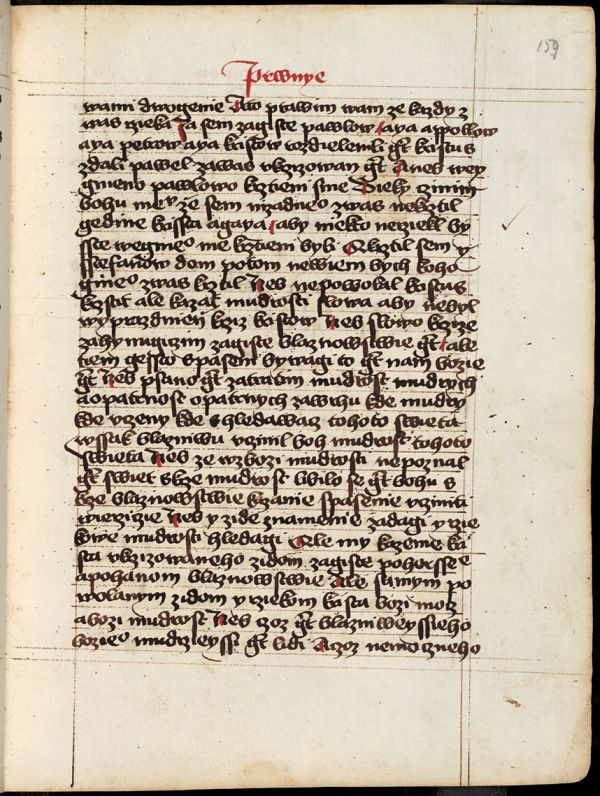 159
Prwnye
wami dwogenie Ato prawim wam ze kazdy z
was rzieka Ja sem zagiste pawlow aya appollow
aya petrow aya kristow rozdielenli gest kristus
zdali pawel zawas vkrizowan gest Anes wey
gmeno pawlowo krztieni sme Dieky czinim
bohu meu ze sem nizadneo zwas nekrztil
gedine krispa agaya aby niekto nerziekl by
sste wegmeo me krztieni byli Okrztil sem y
sstefanow dom potom newiem bych koho
gineo zwas krztil Nes neposlal kristus
krzstit ale kazat mudrosti slowa aby nebyl
wyprazdnien krziz kristow Nes slowo krzize
zahynugizim zagiste blaznowstwie gest ale
tiem gessto spaseni bywagi to gest nam bozie
gest Nes psano gest zatratim mudrost mudrych
aopatrnost opatrnych zawrhu kde mudry
kde vczeny kde shledawacz tohoto swieta
wssak blazniwu vczinil boh mudrost tohoto
swieta Nes ze wbozi mudrosti nepoznal
gest swiet skrze mudrost libilo se gest bohu s
krze blaznowstwie kazanie spasenie vcziniti
wierzicie Nes y zide znamenie zadagi y rzie
kowe mudrosti hledagi Ale my kazeme kri
sta vkrizowaneho zidom zagiste pohorssee
apohanom blaznowstwie Ale samym po
wolanym zidom y rziekom krista bozi moz
abozi mudrost Nes czoz gest blazniweyssieho
bozieo mudrzieyssi gest lidi Aczoz nemoczneho